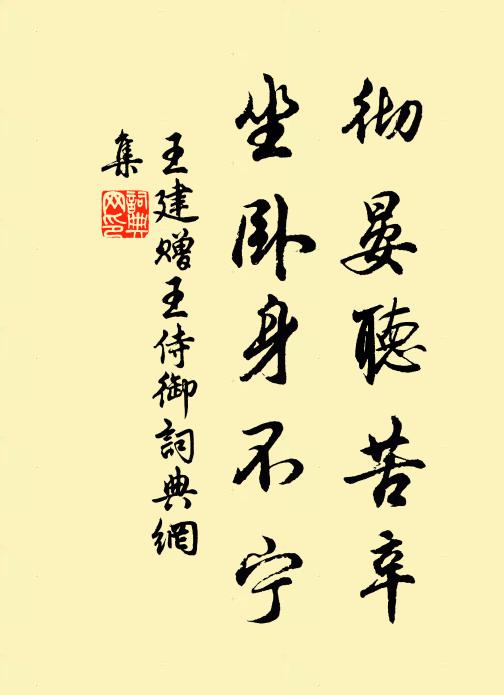 彻晏聽苦辛
坐卧身不宁
王建贈王侍御詞典網
集
詞典网印